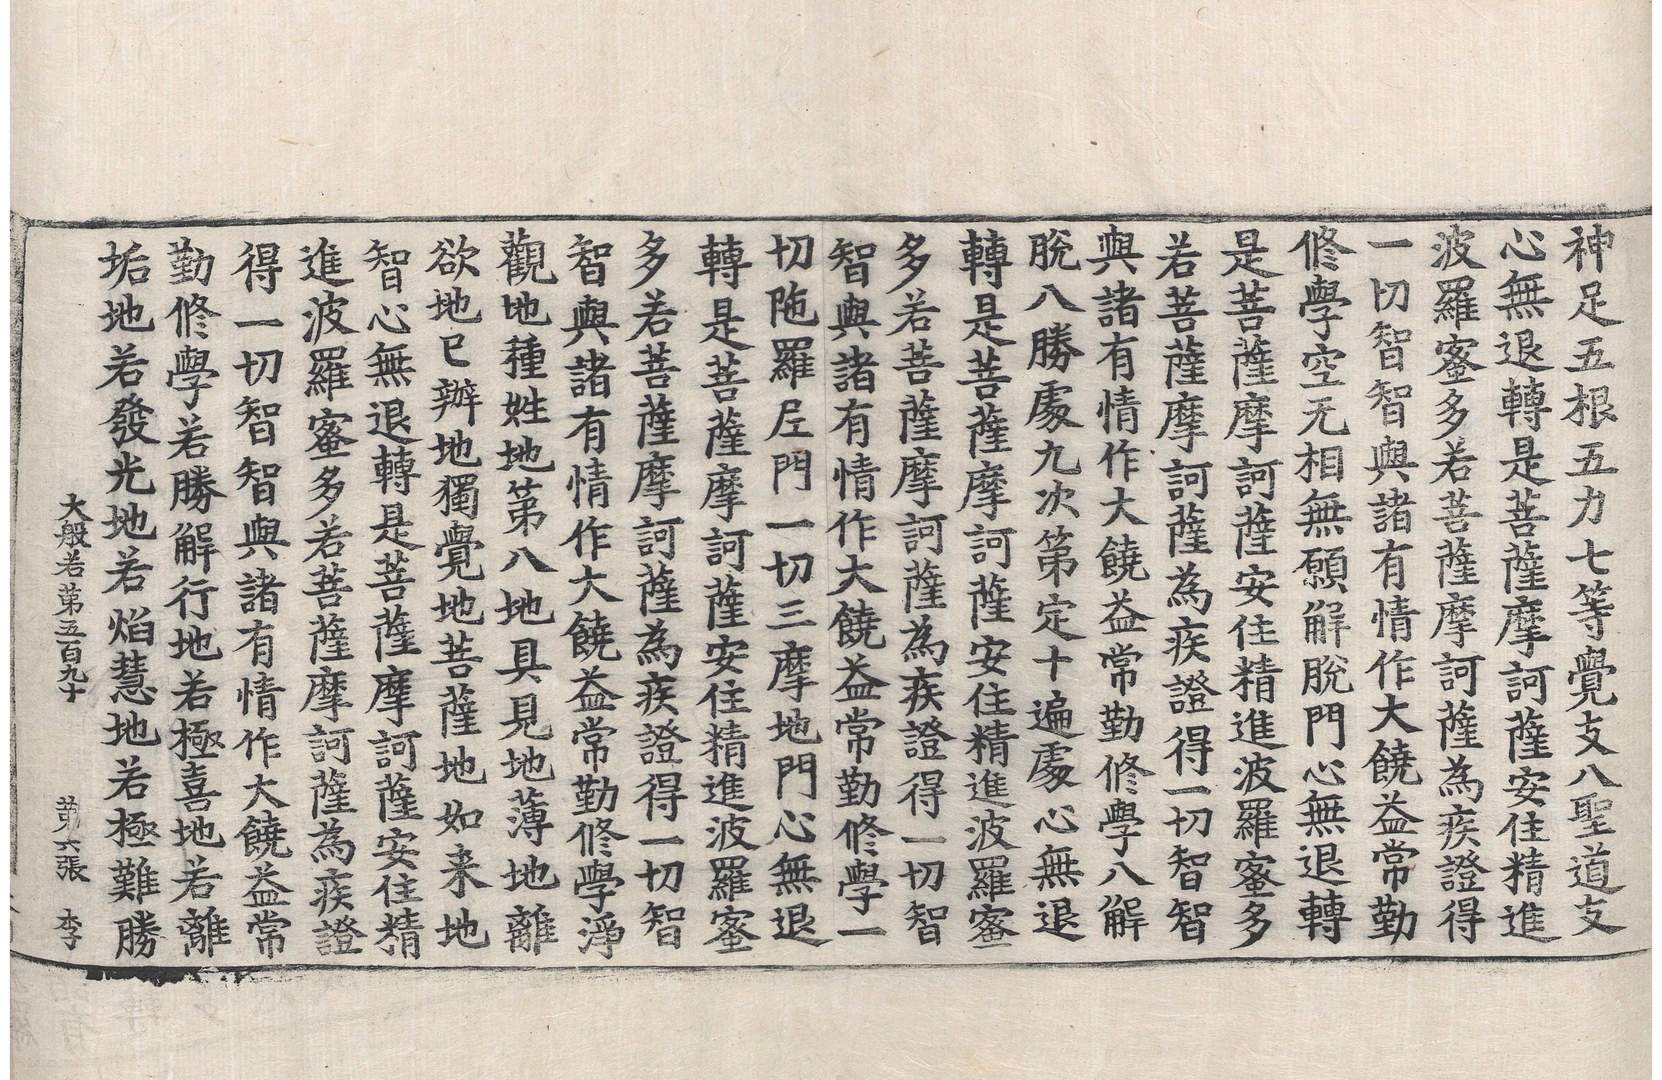 神足五根五力七等覺支八聖道支
心無退轉是菩薩摩訶薩安住精進
波羅蜜多若菩薩摩訶薩為疾證得
一切智智與諸有情作大饒益常勤
修學空无相無願解脫門心無退轉
是菩薩摩訶薩安住精進波羅蜜多
若菩薩摩訶薩為疾證得一切智智
與諸有情作大饒益常勤修學八解
脫八勝處九次第定十遍處心無退
轉是菩薩摩訶薩安住精進波羅蜜
多若菩薩摩訶薩為疾證得一切智
智與諸有情作大饒益常勤修學一
切陁羅尼門一切三摩地門心無退
轉是菩薩摩訶薩安住精進波羅蜜
多若菩薩摩訶薩為疾證得一切智
智與諸有情作大饒益常勤修學淨
觀地種姓地第八地具見地薄地離
欲地已辦地獨覺地菩薩地如来地
智心無退轉是菩薩摩訶薩安住精
進波羅蜜多若菩薩摩訶薩為疾證
得一切智智與諸有情作大饒益常
勤修學若勝解行地若極喜地若離
垢地若發光地若焰慧地若極難勝
大般若第五百九十 第六張 李